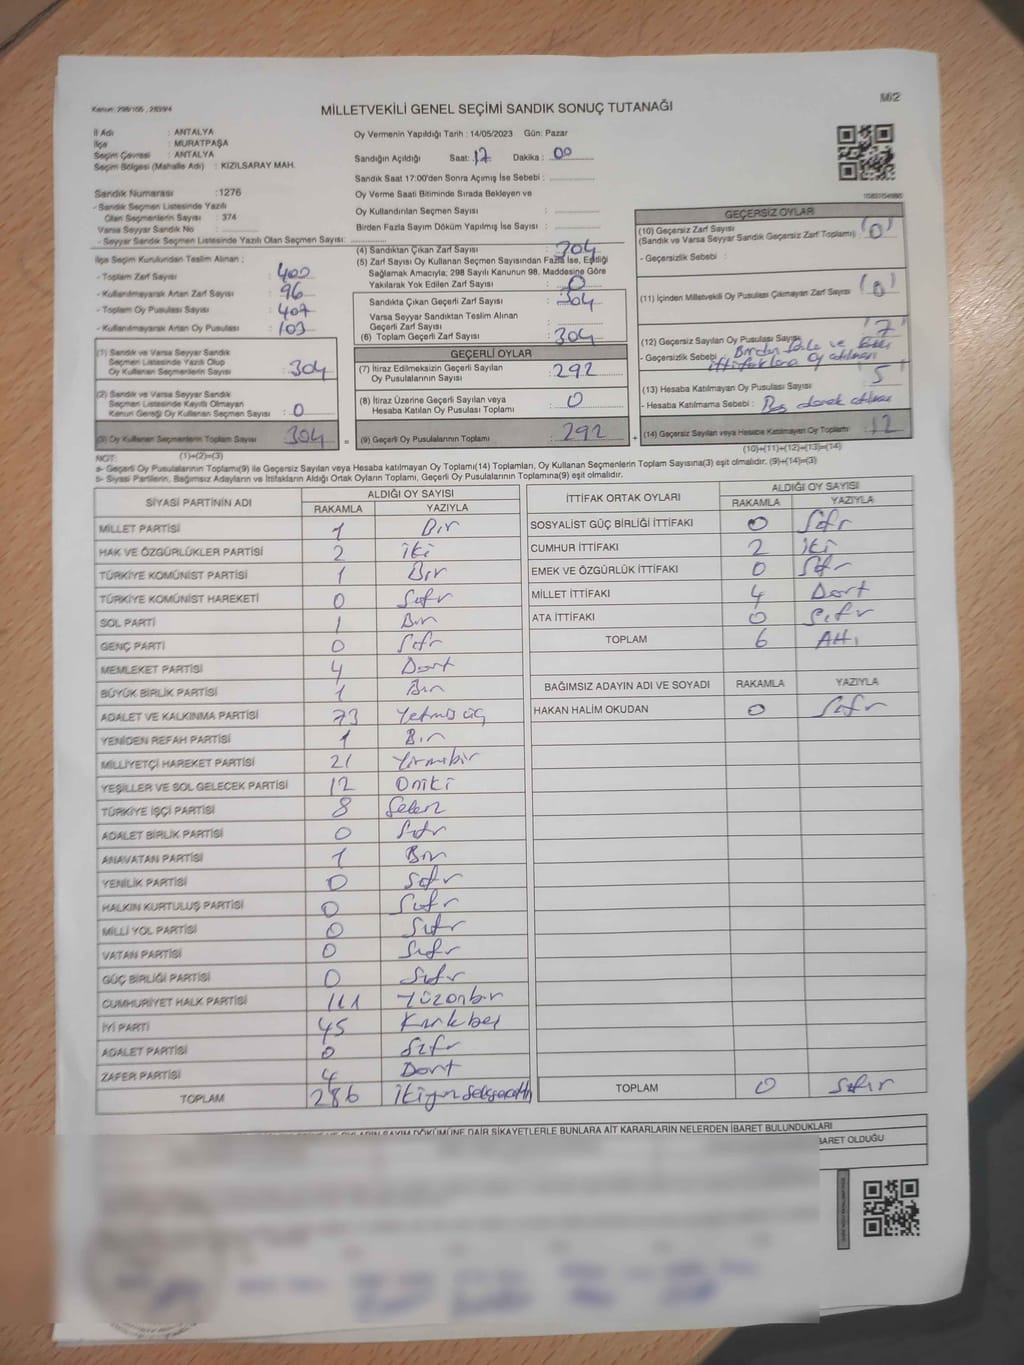 Kanun: 298/105 , 2839/4
MİLLETVEKİLİ GENEL SEÇİMİ SANDIK SONUÇ TUTANAĞI
M2
İl Adı : ANTALYA
İlçe : MURATPAŞA
Seçim Çevresi : ANTALYA
Seçim Bölgesi (Mahalle Adı) : KIZILSARAY MAH.
Sandık Numarası :1276
- Sandık Seçmen Listesinde Yazılı
Olan Seçmenlerin Sayısı : 374
Varsa Seyyar Sandık No :
- Seyyar Sandık Seçmen Listesinde Yazılı Olan Seçmen Sayısı:
İlçe Seçim Kurulundan Teslim Alınan ;
- Toplam Zarf Sayısı : 400
- Kullanılmayarak Artan Zarf Sayısı : 96
- Toplam Oy Pusulası : 407
- Kullanılmayarak Artan Oy Pusulası : 103
(1) Sandık ve Varsa Seyyar Sandık
Seçmen Listesinde Yazılı Olup
Oy Kullanan Seçmenlerin Sayısı : 304
(2) Sandık ve Varsa Seyyar Sandık
Seçmen Listesinde Kayıtlı Olmayan
Kanun Gereği Oy Kullanan Seçmen Sayısı : 0
(3) Oy Kullanan Seçmenlerin Toplam Sayısı 304
Oy Vermenin Yapıldığı Tarih : 14/05/2023 Gün: Pazar
Sandığın Açıldığı Saat: 17 Dakika : 00
Sandık Saat 17:00'den Sonra Açımış İse Sebebi :
Oy Verme Saati Bitiminde Sırada Bekleyen ve
Oy Kullandırılan Seçmen Sayısı :
Birden Fazla Sayım Döküm Yapılmış İse Sayısı :
(4) Sandıktan Çıkan Zarf Sayısı : 304
(5) Zarf Sayısı Oy Kullanan Seçmen Sayısından Fazla İse, Eşitliği
Sağlamak Amacıyla; 298 Sayılı Kanunun 98. Maddesine Göre
Yakılarak Yok Edilen Zarf Sayısı : 0
Sandıkta Çıkan Geçerli Zarf Sayısı : 304
Varsa Seyyar Sandıktan Teslim Alınan
Geçerli Zarf Sayısı :
(6) Toplam Geçerli Zarf Sayısı : 304
GEÇERLİ OYLAR
(7) İtiraz Edilmeksizin Geçerli Sayılan
Oy Pusulalarının Sayısı : 292
(8) İtiraz Üzerine Geçerli Sayılan veya
Hesaba Katılan Oy Pusulası Toplamı : 0
= (9) Geçerli Oy Pusulalarının Toplamı : 292
GEÇERSİZ OYLAR
(10) Geçersiz Zarf Sayısı
(Sandık ve Varsa Seyyar Sandık Geçersiz Zarf Toplamı) : (0)
- Geçersizlik Sebebi :
(11) İçinden Milletvekili Oy Pusulası Çıkmayan Zarf Sayısı (0)
(12) Geçersiz Sayılan Oy Pusulası Sayısı 7
- Geçersizlik Sebebi : Birden fazla ve
ittifaklara oy atılması
(13) Hesaba Katılmayan Oy Pusulası Sayısı 5
- Hesaba Katılmama Sebebi : Boş olarak atılması
+ (14) Geçersiz Sayılan veya Hesaba Katılmayan Oy Toplamı : 12
NOT: (1)+(2)=(3)
(10)+(11)+(12)+(13)=(14)
a- Geçerli Oy Pusulalarının Toplamı(9) ile Geçersiz Sayılan veya Hesaba katılmayan Oy Toplamı(14) Toplamları, Oy Kullanan Seçmenlerin Toplam Sayısına(3) eşit olmalıdır. (9)+(14)=(3)
b- Siyasi Partilerin, Bağımsız Adayların ve İttifakların Aldığı Ortak Oyların Toplamı, Geçerli Oy Pusulalarının Toplamına(9) eşit olmalıdır.
SİYASİ PARTİNİN ADI ALDIĞI OY SAYISI
RAKAMLA YAZIYLA
MİLLET PARTİSİ 1 Bir
HAK VE ÖZGÜRLÜKLER PARTİSİ 2 iki
TÜRKİYE KOMÜNİST PARTİSİ 1 Bir
TÜRKİYE KOMÜNİST HAREKETİ 0 Sıfır
SOL PARTİ 1 Bir
GENÇ PARTİ 0 Sıfır
MEMLEKET PARTİSİ 4 Dört
BÜYÜK BİRLİK PARTİSİ 1 Bir
ADALET VE KALKINMA PARTİSİ 73 Yetmiş üç
YENİDEN REFAH PARTİSİ 1 Bir
MİLLİYETÇİ HAREKET PARTİSİ 21 Yirmibir
YEŞİLLER VE SOL GELECEK PARTİSİ 12 Oniki
TÜRKİYE İŞÇİ PARTİSİ 8 Sekiz
ADALET BİRLİK PARTİSİ 0 Sıfır
ANAVATAN PARTİSİ 1 Bir
YENİLİK PARTİSİ 0 Sıfır
HALKIN KURTULUŞ PARTİSİ 0 Sıfır
MİLLİ YOL PARTİSİ 0 Sıfır
VATAN PARTİSİ 0 Sıfır
GÜÇ BİRLİĞİ PARTİSİ 0 Sıfır
CUMHURİYET HALK PARTİSİ 111 Yüzonbir
İYİ PARTİ 45 Kırkbeş
ADALET PARTİSİ 0 Sıfır
ZAFER PARTİSİ 4 Dört
TOPLAM 286 ikiyüzseksenaltı
İTTİFAK ORTAK OYLARI ALDIĞI OY SAYISI
RAKAMLA YAZIYLA
SOSYALİST GÜÇ BİRLİĞİ İTTİFAKI 0 Sıfır
CUMHUR İTTİFAKI 2 iki
EMEK VE ÖZGÜRLÜK İTTİFAKI 0 Sıfır
MİLLET İTTİFAKI 4 Dört
ATA İTTİFAKI 0 Sıfır
TOPLAM 6 Altı
BAĞIMSIZ ADAYIN ADI VE SOYADI RAKAMLA YAZIYLA
HAKAN HALİM OKUDAN 0 Sıfır
TOPLAM 0 Sıfır
SAYIM DÖKÜMÜNE DAİR ŞİKAYETLERLE BUNLARA AİT KARARLARIN NELERDEN İBARET BULUNDUKLARI
İBARET OLDUĞU